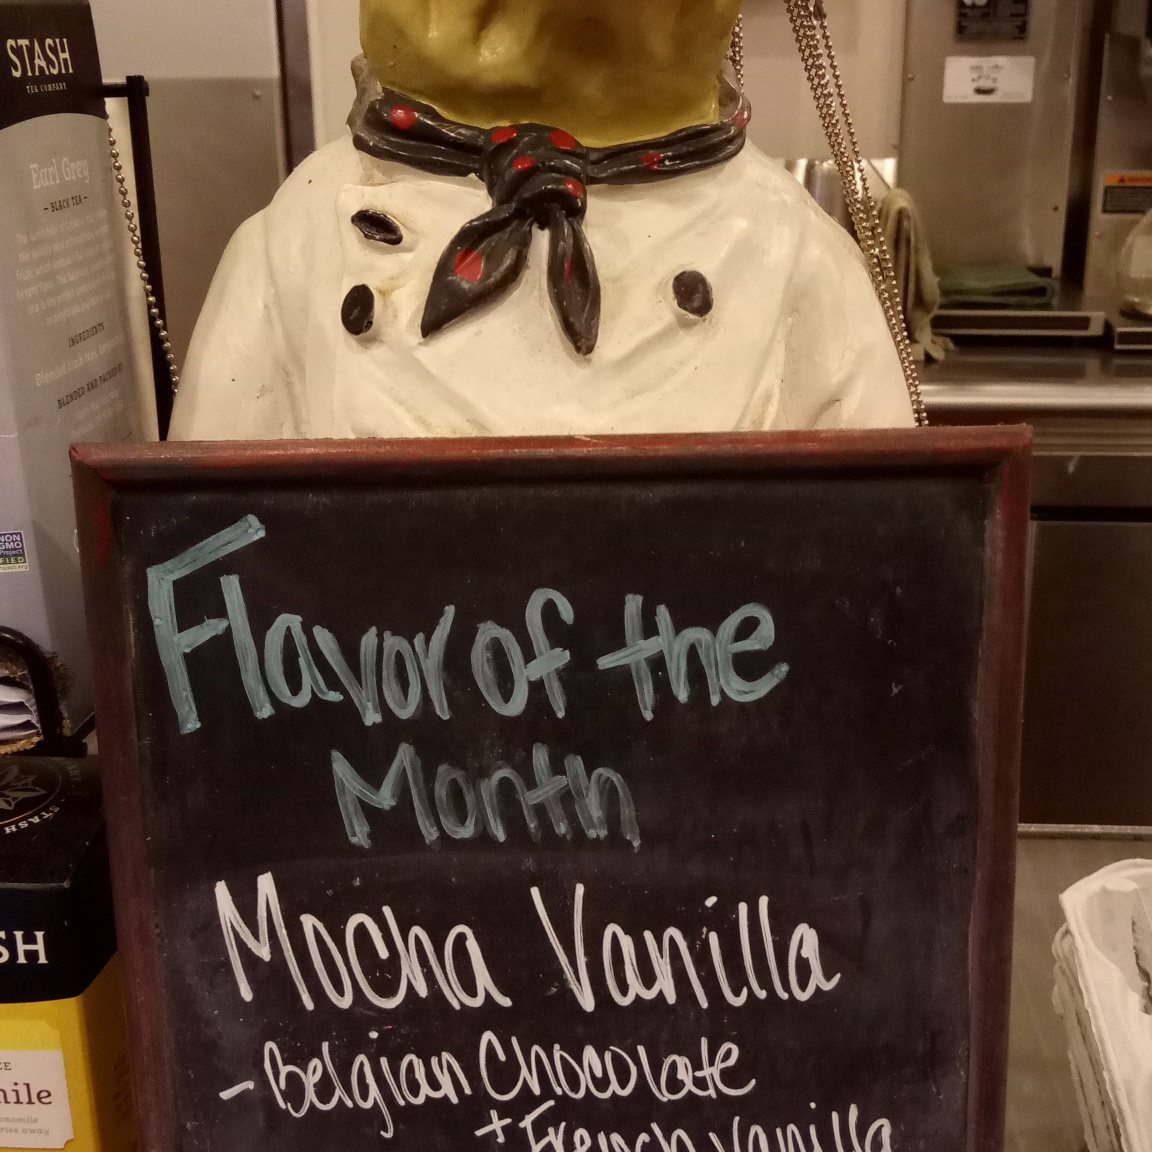 STASH
TEA COMPANY
Earl Grey
- BLACK TEA -
INGREDIENTS
Blended black teas
BLENDED AND PACKED BY
NON
GMO
Project
FIED
STASH
SH
mile
Flavor of the
Month
Mocha Vanilla
- Belgian Chocolate
+ French Vanilla